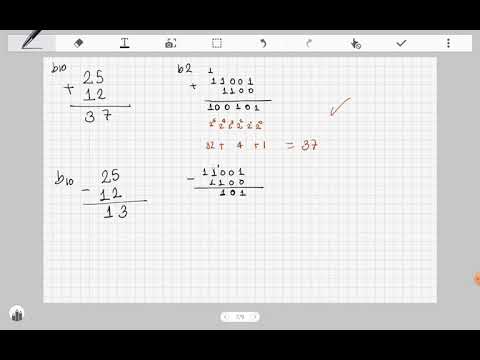 b10
25
+ 12
37
b2
1
11001
+ 1100
100101
2⁵ 2⁴ 2³ 2² 2¹ 2⁰
32 + 4 + 1 = 37
b10
25
- 12
13
1
11001
- 1100
101